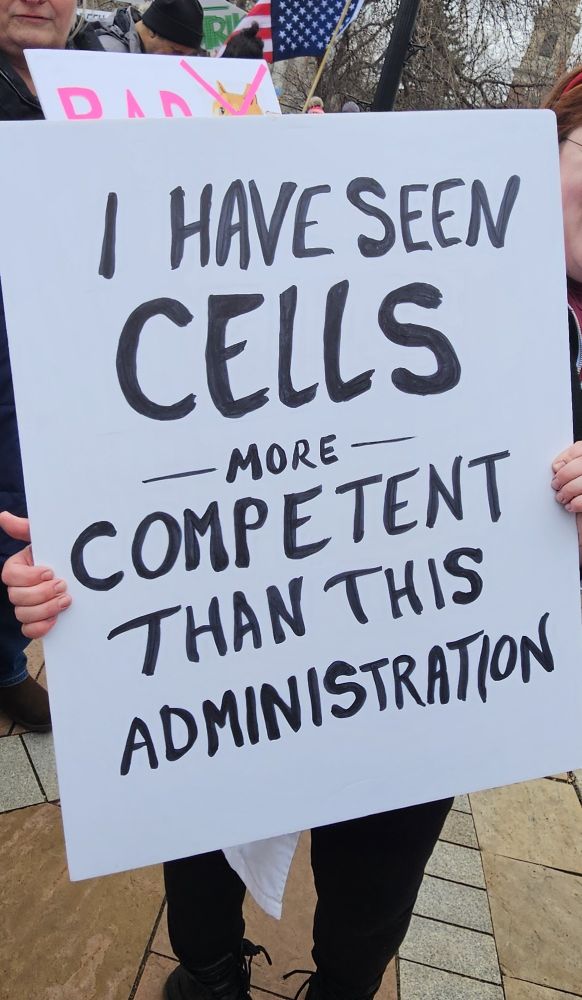 BAD
I HAVE SEEN
CELLS
MORE
COMPETENT
THAN THIS
ADMINISTRATION